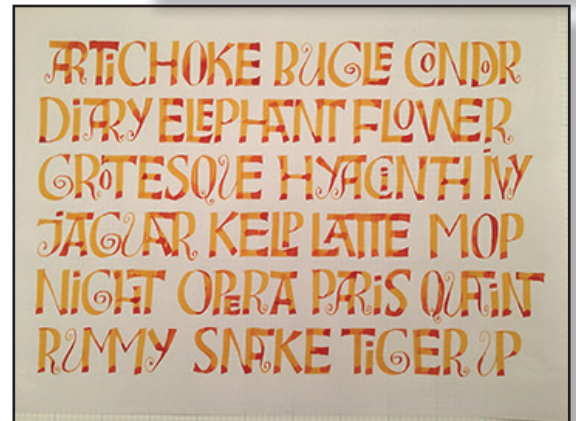 ARTiCHOKE BUGLE CONDOR
DiARY ELEPHANT FLOWER
GROTESQUE HYACiNTH iVY
JAGUAR KELP LATTE MOP
NiGHT OPERA PARiS QUAiNT
RUMMY SNAKE TiGER UP